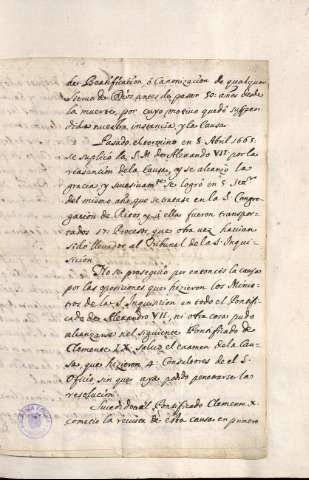 de Beatificacion, ó Canonizacion de qualquier
Siervo de Dios antes de pasar 50. años desde
la muerte, por cuyo motivo quedó suspen-
dida nuestra instancia, y la Causa.
Pasado el termino en 8. Abril 1665.
se suplicó la S.d de Alexandro VII. por la
reasuncion de la Causa, y se alcanzó la
gracia y se logró en 5.
del mismo año que se tratase en la S. Congre-
gación de Ritos, y á ella fueron transpor-
tados 17. Procesos, que otra vez havian
sido llevados al Tribunal de la S. Inqui-
sicion.
No se prosiguió por entonces la causa
por las oposiciones que hizieron los Minis-
tros de la S. Inquisicion en todo el Pontifi-
cado de Alexandro VII, ni otra cosa pudo
alcanzarse en el siguiente Pontificado de
Clemente IX. el examen de la Cau-
sa, que hizieron 4. Consultores del S.
Oficio sin que aya podido penetrarse la
resolucion.
Sucedió en el Pontificado Clemente X.
cometió la revista de esta causa en primero